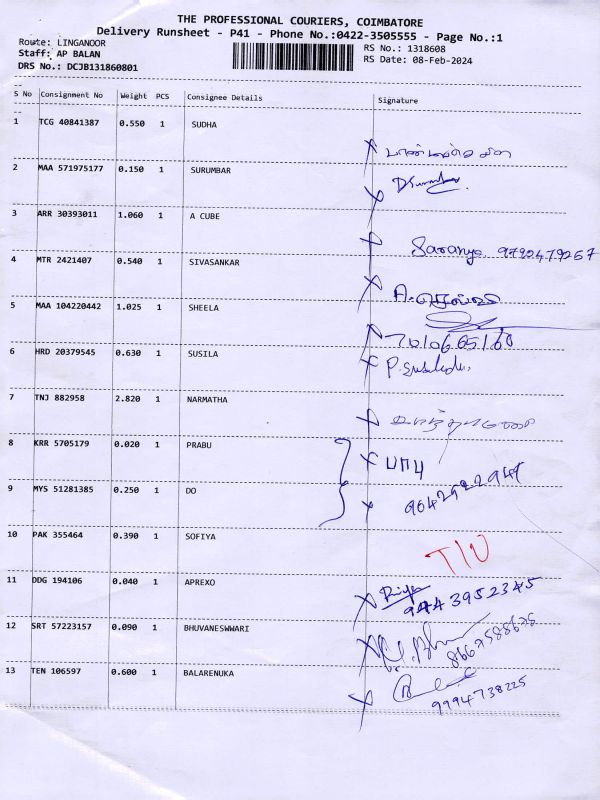 THE PROFESSIONAL COURIERS, COIMBATORE
Delivery Runsheet - P41 - Phone No.:0422-3505555 - Page No.:1
Route: LINGANOOR
RS No.: 1318608
Staff: AP BALAN
RS Date: 08-Feb-2024
DRS No.: DCJB131860801
S No Consignment No Weight PCS Consignee Details Signature
1 TCG 40841387 0.550 1 SUDHA
2 MAA 571975177 0.150 1 SURUMBAR
3 ARR 30393011 1.060 1 A CUBE
Saranya 9792479267
4 MTR 2421407 0.540 1 SIVASANKAR
5 MAA 104220442 1.025 1 SHEELA
7010665160
6 HRD 20379545 0.630 1 SUSILA
7 TNJ 882958 2.820 1 NARMATHA
8 KRR 5705179 0.020 1 PRABU
பாபு
9 MYS 51281385 0.250 1 DO
10 PAK 355464 0.390 1 SOFIYA
11 DDG 194106 0.040 1 APREXO
9443952345
12 SRT 57223157 0.090 1 BHUVANESWWARI
13 TEN 106597 0.600 1 BALARENUKA
9994738225